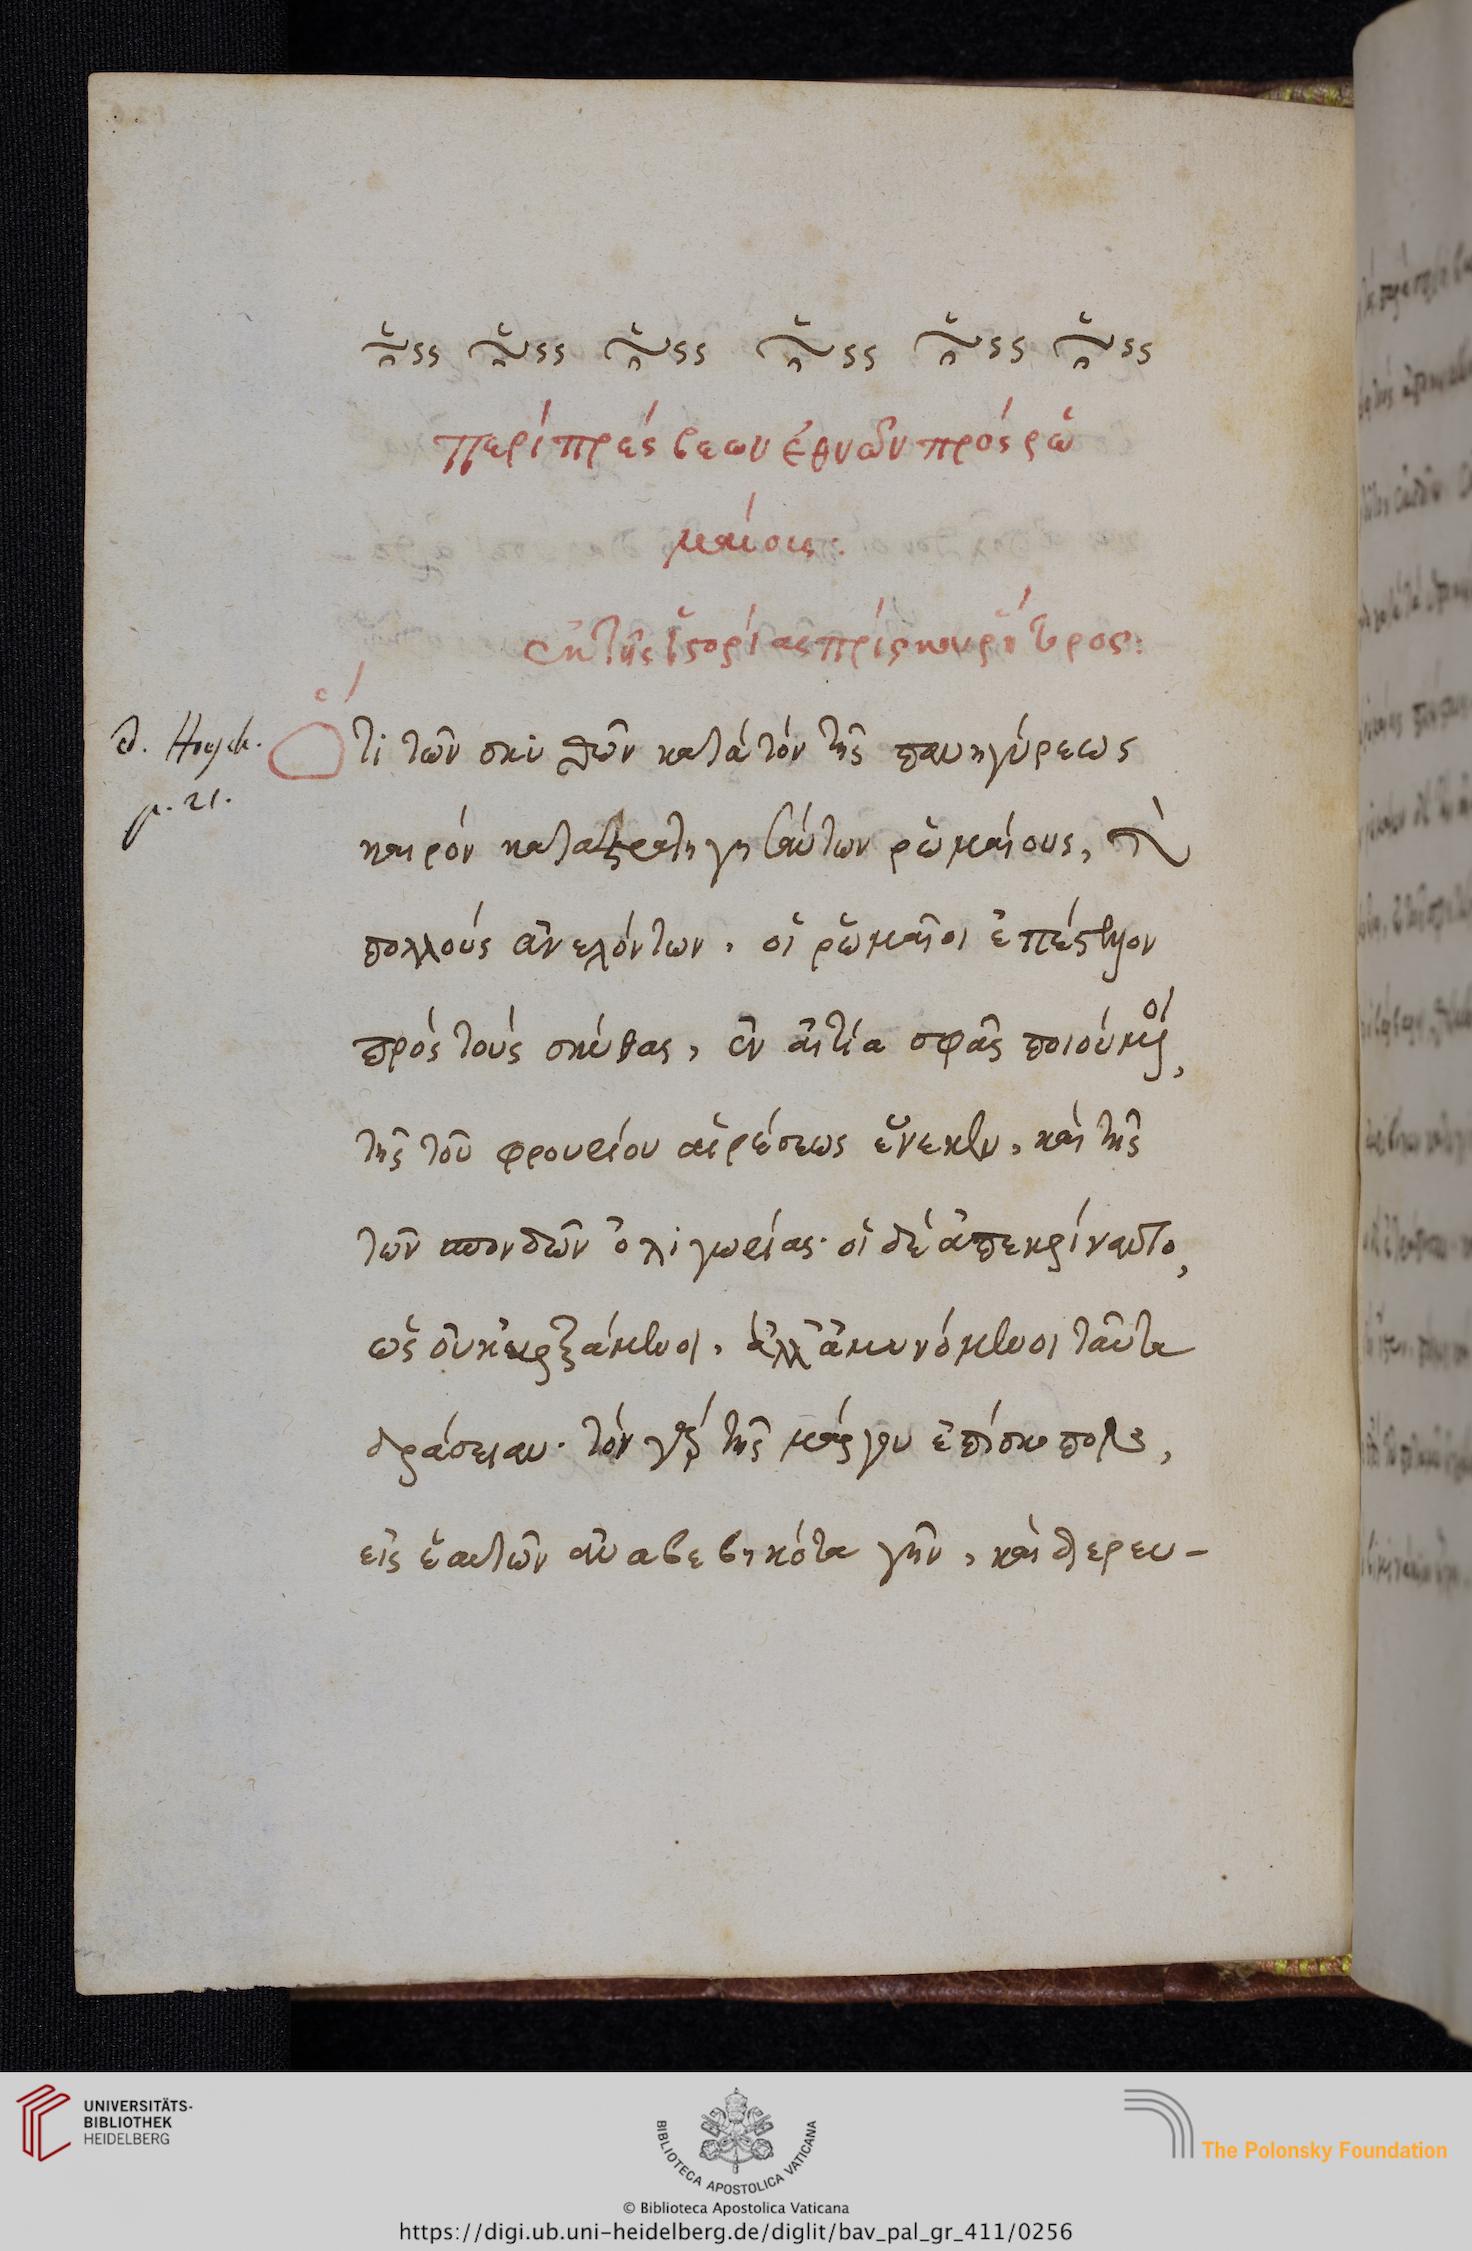 περὶ πρέσβεων ἐθνῶν πρὸς ῥω
μαίους:
ἐκ τῆς ἱστορίας πρίσκου ῥήτορος:
Ὅτι τῶν σκυθῶν κατὰ τὸν τῆς πανηγύρεως
καιρὸν καταστρατηγησάντων ῥωμαίους, καὶ
πολλοὺς ἀνελόντων. οἱ ῥωμαῖοι ἐπέστελλον
πρὸς τοὺς σκύθας, ἐν αἰτίᾳ σφᾶς ποιούμενοι,
τῆς τοῦ φρουρίου αἱρέσεως ἕνεκεν, καὶ τῆς
τῶν σπονδῶν ὀλιγωρίας. οἱ δὲ ἀπεκρίναντο,
ὡς οὐκ ἀρξάμενοι, ἀλλ' ἀμυνόμενοι ταῦτα
δράσειαν. τὸν γὰρ τῆς μάργου ἐπίσκοπον,
εἰς ἑαυτῶν ἀναβεβηκότα γῆν, καὶ διερευ-
p. 21.
UNIVERSITÄTS-
BIBLIOTHEK
HEIDELBERG
BIBLIOTECA APOSTOLICA VATICANA
© Biblioteca Apostolica Vaticana
The Polonsky Foundation
https://digi.ub.uni-heidelberg.de/diglit/bav_pal_gr_411/0256